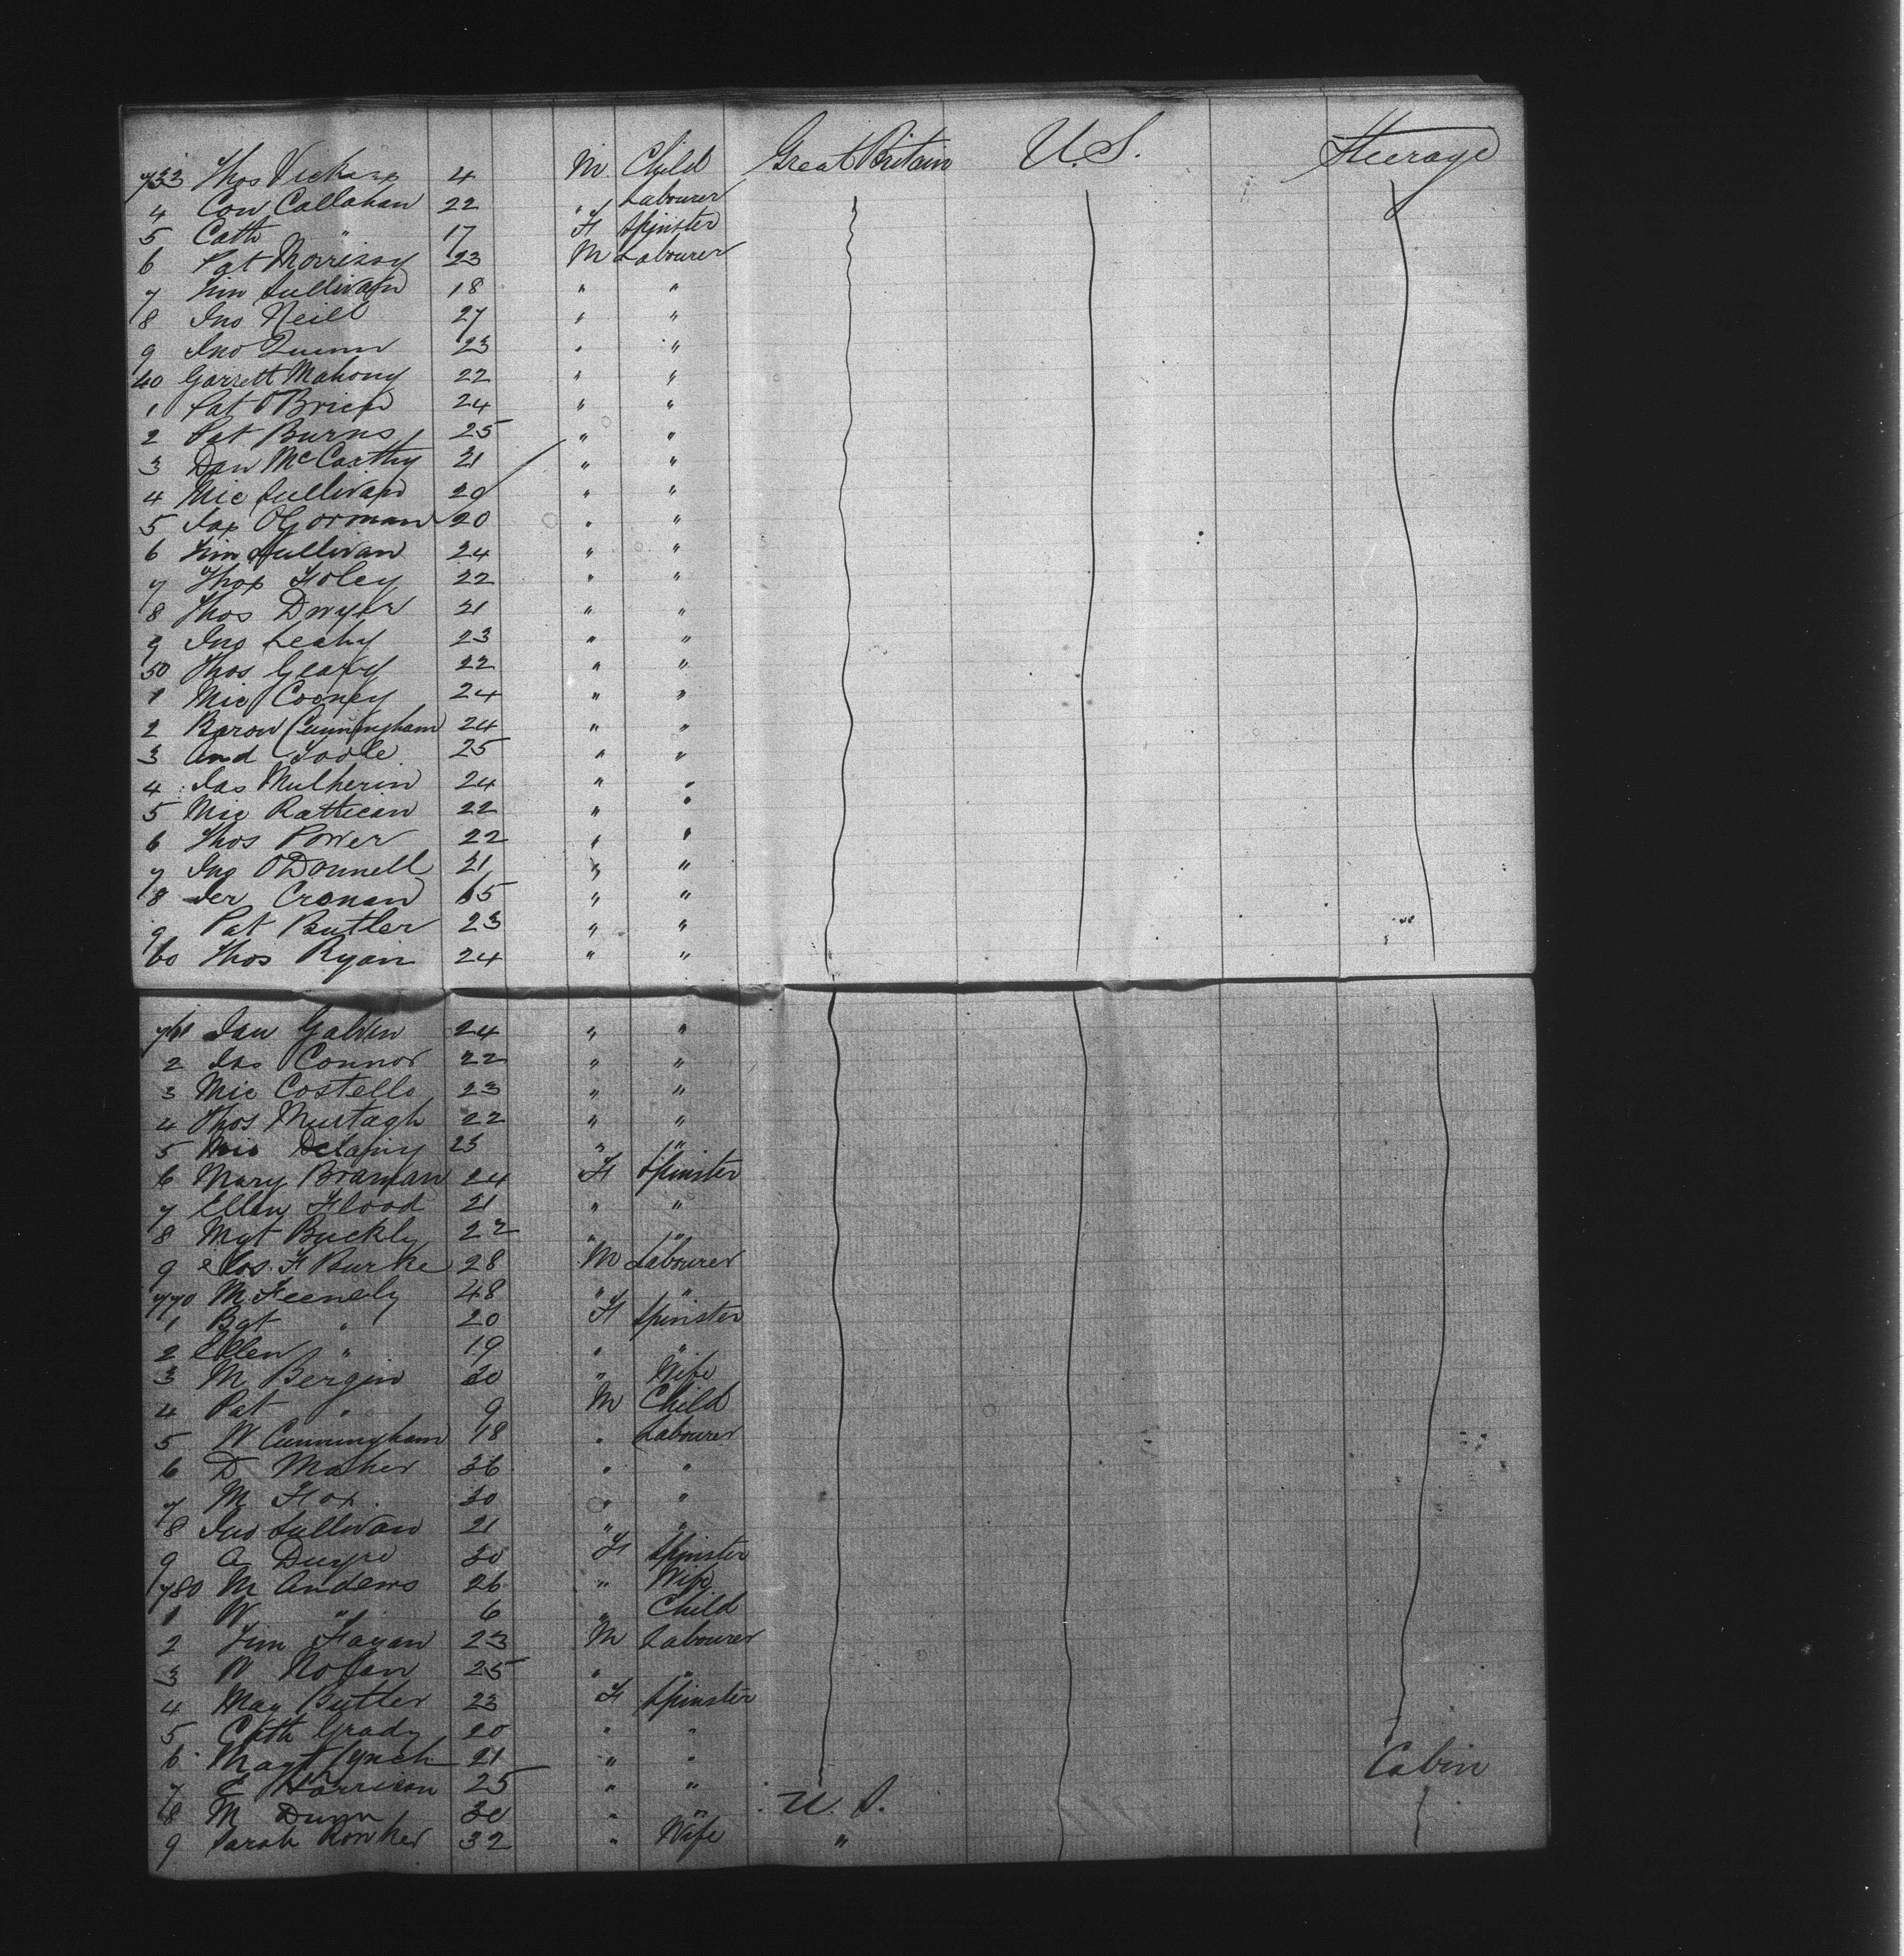 733 Thos Vickers 4 M Child Great Britain U.S. Steerage
4 Con Callahan 22 " Labourer
5 Cath " 17 F Spinster
6 Pat Morrissy 23 M Labourer
7 Tim Sullivan 18 " "
8 Jno Neill 27 " "
9 Jno Quinn 23 " "
40 Garrett Mahony 22 " "
1 Pat O'Brien 24 " "
2 Pat Burns 25 " "
3 Dan McCarthy 21 " "
4 Mic Sullivan 20 " "
5 Jas O'Gorman 20 " "
6 Tim Sullivan 24 " "
7 Thos Foley 22 " "
8 Thos Dwyer 21 " "
9 Jno Leahy 23 " "
50 Thos Geary 22 " "
1 Mic Cooney 24 " "
2 Cunningham 24 " "
3 And Toole 25 " "
4 Jas Mulherin 24 " "
5 Mic Rattican 22 " "
6 Thos Power 22 " "
7 Jno O'Donnell 21 " "
8 Jer Cronan 65 " "
9 Pat Butler 23 " "
60 Thos Ryan 24 " "
761 Galvin 24 " "
2 Jas Connor 22 " "
3 Mic Costello 23 " "
4 Thos Murtagh 22 " "
5 Mic Delany 23 " "
6 Mary Brannan 24 F Spinster
7 Ellen Flood 21 " "
8 Mgt Buckly 22 " "
9 F Burke 28 M Labourer
770 M Feenely 48 " "
1 Bgt " 20 F Spinster
2 Ellen " 19 " "
3 M Bergin 30 " Wife
4 Pat " 9 M Child
5 W Cunningham 18 " Labourer
6 D Maher 36 " "
7 M Fox 30 " "
8 Jno Sullivan 21 " "
9 A Dwyre 30 F Spinster
780 M Andews 26 " Wife
1 W " 6 " Child
2 Tim Fagan 23 M Labourer
3 W Nolan 25 " "
4 May Butler 23 F Spinster
5 Cath Grady 20 " "
6 Magt Lynch 21 " " Cabin
7 E Harrison 25 " "
8 M Dunn 30 " " U.S.
9 Sarah 32 " Wife "